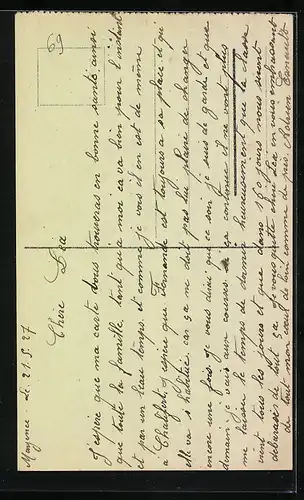 Mayence Le 21.5.27
Chère Léa
J'espère que ma carte vous trouveras en bonne santé ainsi
que toute la famille, tant qu'a moi ca va bien pour l'instant
et par un beau temps et comme je vois il en est de même
a espère que Fernande est toujours a sa place et qu'
elle va s'habituer car ça ne doit pas lui plaire de changer
encore une fois je vous dirai que ce soir je suis de garde et que
demain je vais aux courses si ça continue il ne vont plus
me laisser le temps de dormir heureusement que la classe
vient tous les jours et que dans 150 jours nous seront
débarassés de tout ça. Je vous quitte chère Léa en vous embrassant
de tout mon cœur de loin comme de près.